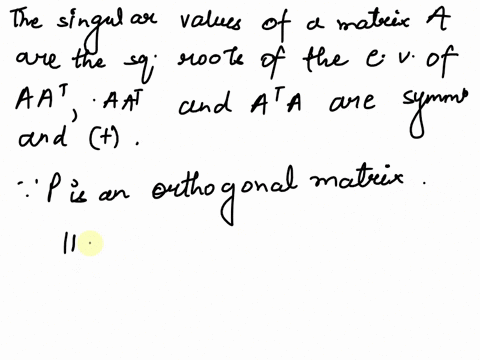 The singular values of a matrix A
are the sq. roots of the e.v. of
AAᵀ, · AAᵀ and AᵀA are symm
and (+) .
∵ P is an orthogonal matrix .
||